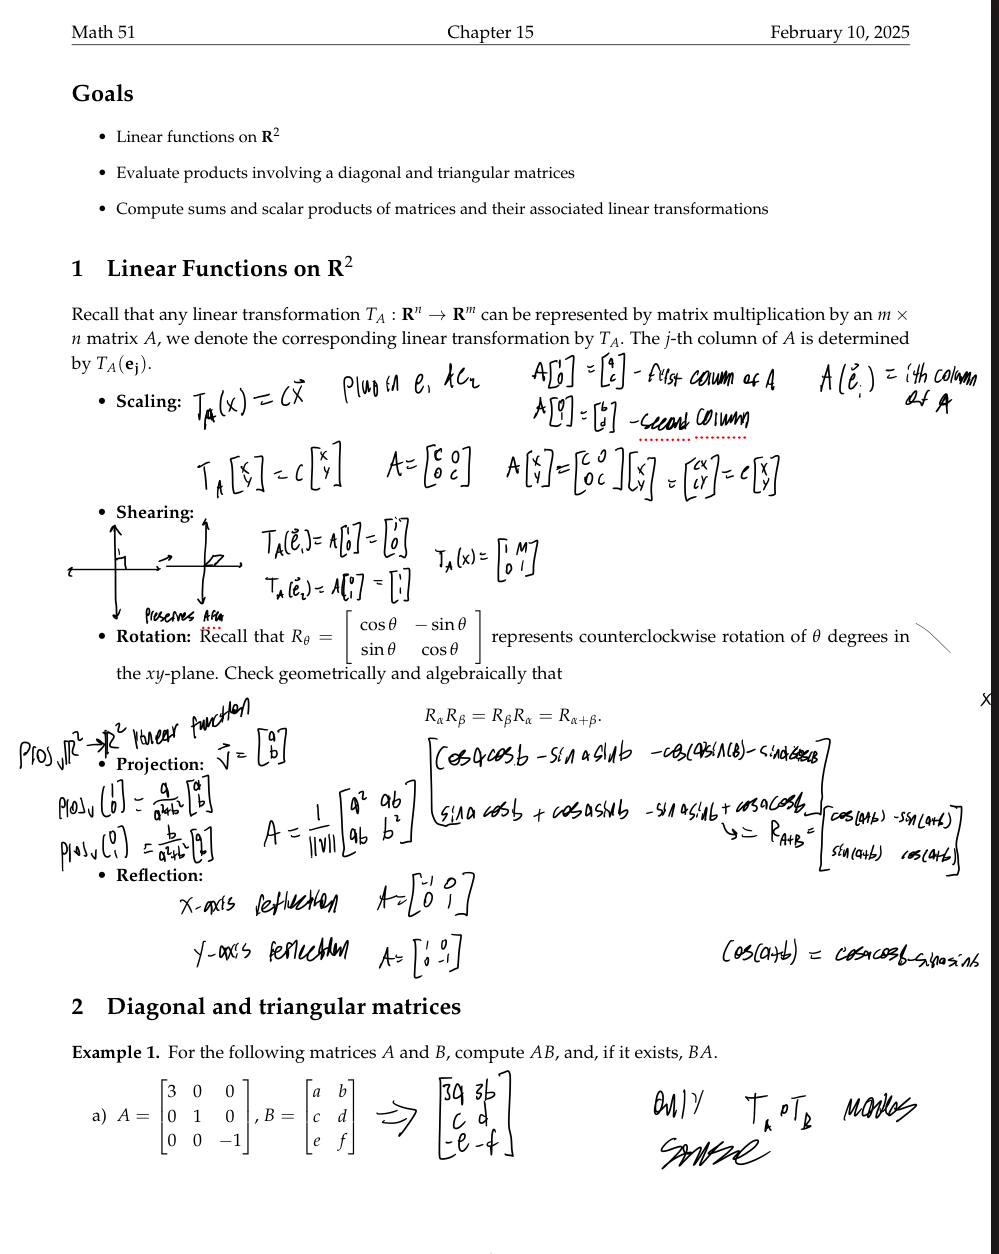 Math 51 Chapter 15 February 10, 2025
Goals
• Linear functions on R²
• Evaluate products involving a diagonal and triangular matrices
• Compute sums and scalar products of matrices and their associated linear transformations
1 Linear Functions on R²
Recall that any linear transformation T_A : Rⁿ → Rᵐ can be represented by matrix multiplication by an m ×
n matrix A, we denote the corresponding linear transformation by T_A. The j-th column of A is determined
by T_A(e_j).
• Scaling: T_A(x) = cx⃗ plug in e₁ & e₂
A[1; 0] = [a; c] - first colum of A
A[0; 1] = [b; d] - second column
A(e⃗ᵢ) = ith column
of A
T_A [x; y] = c [x; y] A = [c 0; 0 c] A[x; y] = [c 0; 0 c][x; y] = [cx; cy] = c[x; y]
• Shearing:
T_A(e⃗₁) = A[1; 0] = [1; 0]
T_A(e⃗₂) = A[0; 1] = [1; 1]
T_A(x) = [1 M; 0 1]
Preserves Area
• Rotation: Recall that R_θ = [cos θ −sin θ; sin θ cos θ] represents counterclockwise rotation of θ degrees in
the xy-plane. Check geometrically and algebraically that
x
R_αR_β = R_βR_α = R_{α+β}.
R² → R² linear function
• Projection: v⃗ = [a; b]
proj_v [1; 0] = a/(a²+b²) [a; b]
proj_v [0; 1] = b/(a²+b²) [a; b]
A = 1/||v|| [a² ab; ab b²]
sina cosb + cosasinb -sinasinb + cosacosb
= R_{A+B} = [cos(a+b) -sin(a+b); sin(a+b) cos(a+b)]
• Reflection:
x-axis reflection A = [-1 0; 0 1]
y-axis reflection A = [1 0; 0 -1]
cos(a+b) = cosacosb-sinasinb
2 Diagonal and triangular matrices
Example 1. For the following matrices A and B, compute AB, and, if it exists, BA.
a) A = [3 0 0; 0 1 0; 0 0 −1], B = [a b; c d; e f] ⇒ [3a 3b; c d; -e -f]
only T_A∘T_B makes
sense